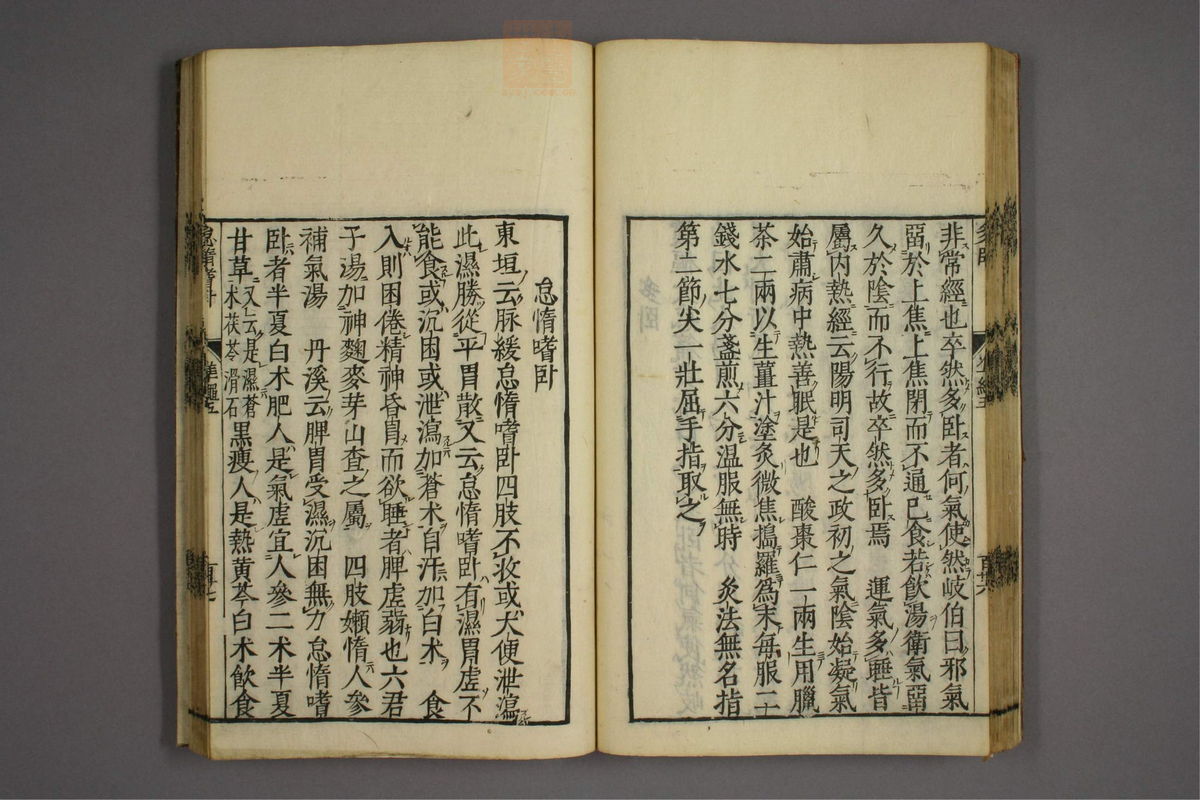 非常經也卒然多臥者何氣使然岐伯曰邪氣
留於上焦上焦閉而不通已食若飮湯衛氣留
久於陰而不行故卒然多臥焉　運氣多睡皆
屬內熱經云陽明司天之政初之氣陰始凝氣
始肅病中熱善眠是也　酸棗仁一兩生用臘
茶二兩以生薑汁塗炙微焦搗羅爲末每服二
錢水七分盞煎六分溫服無時　灸法無名指
第二節尖一壯屈手指取之
怠惰嗜臥
東垣云脉緩怠惰嗜臥四肢不收或大便泄瀉
此濕勝從平胃散又云怠惰嗜臥有濕胃虛不
能食或沉困或泄瀉加蒼术自汗加白术　食
入則困倦精神昏冐而欲睡者脾虛弱也六君
子湯加神麴麥芽山査之屬　四肢嬾惰人參
補氣湯　丹溪云脾胃受濕沉困無力怠惰嗜
臥者半夏白术肥人是氣虛宜人參二术半夏
甘草又云是濕蒼术茯苓滑石黑瘦人是熱黄芩白术飮食